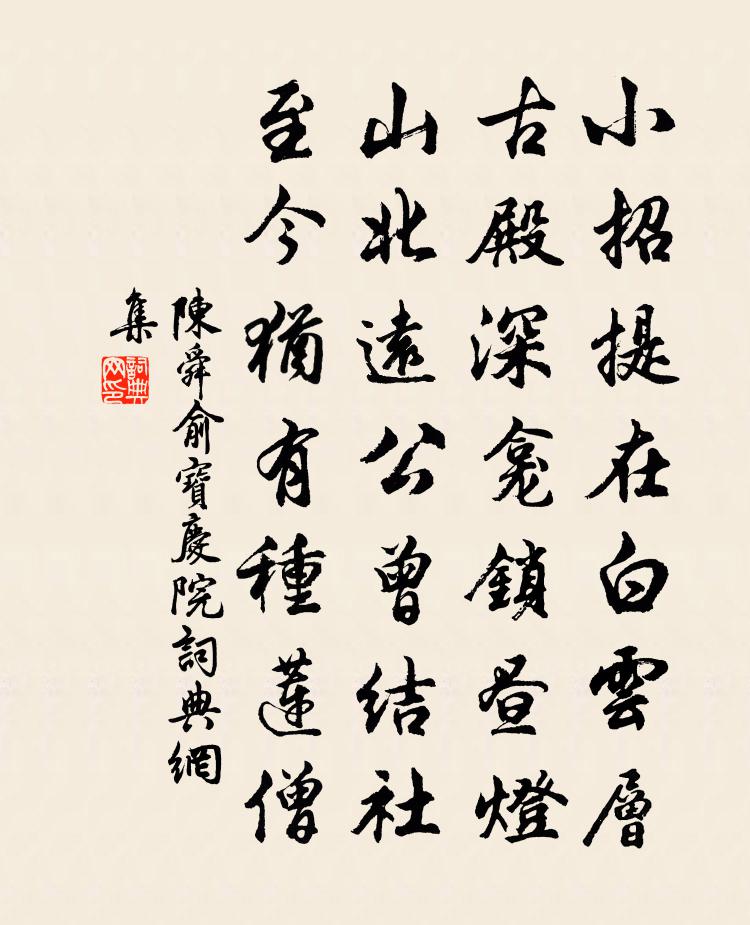 小招提在白雲層
古殿深龛鎖昼燈
山北遠公曾結社
至今猶有種蓮僧
陳舜俞寶慶院詞典網
集
詞典
网印